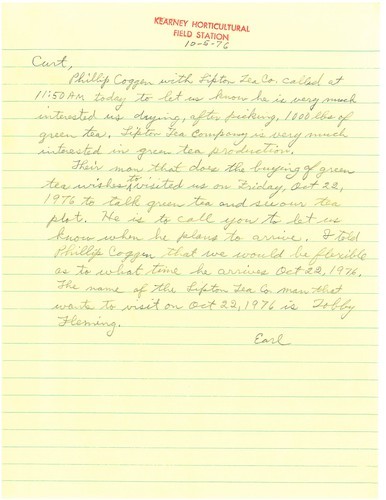 KEARNEY HORTICULTURAL
FIELD STATION
10-5-76
Curt,
Phillip Coggen with Lipton Tea Co. called at
11:50 AM. today to let us know he is very much
interested us drying, after picking, 1000 lbs of
green tea. Lipton Tea Company is very much
interested in green tea production.
Their man that does the buying of green
tea wishes to visited us on Friday, Oct 22,
1976 to talk green tea and see our tea
plot. He is to call you to let us
know when he plans to arrive. I told
Phillip Coggen that we would be flexible
as to what time he arrives Oct 22, 1976.
The name of the Lipton Tea Co. man that
wants to visit on Oct 22, 1976 is Tobby
Fleming.
Earl